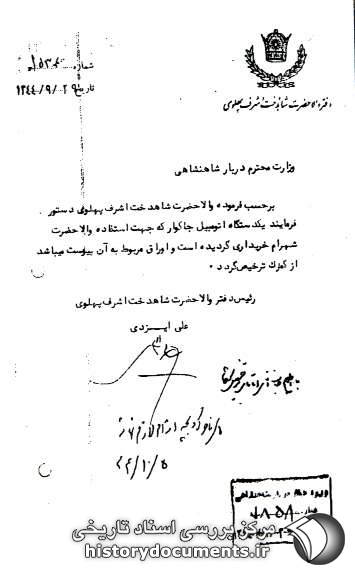 دفتر والاحضرت شاهدخت اشرف پهلوی
شماره
تاریخ ۱۳۴۴/۹/۲۹
وزارت محترم دربار شاهنشاهی
برحسب فرموده والاحضرت شاهدخت اشرف پهلوی دستور
فرمایند یکدستگاه اتومبیل جاکوار که جهت استفاده والاحضرت
شهرام خریداری گردیده است و اوراق مربوط به آن بپیوست میباشد
از گمرک ترخیص گردد .
رئیس دفتر والاحضرت شاهدخت اشرف پهلوی
علی ایزدی
۴۴/۱۰/۵
مرکز بررسی اسناد تاریخی
historydocuments.ir